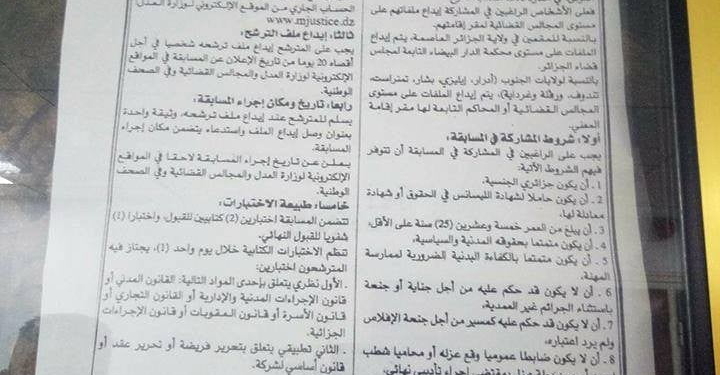 فعلى الأشخاص الراغبين في المشاركة إيداع ملفاتهم على
مستوى المجالس القضائية لمقر إقامتهم.
بالنسبة للمقيمين في ولاية الجزائر العاصمة، يتم إيداع
الملفات على مستوى محكمة الدار البيضاء التابعة لمجلس
قضاء الجزائر.
بالنسبة لولايات الجنوب (أدرار، إيليزي، بشار، تمنراست،
تندوف، ورقلة وغرداية)، يتم إيداع الملفات على مستوى
المجالس القضائية أو المحاكم التابعة لها مقر إقامة
المعني.
أولا: شروط المشاركة في المسابقة:
يجب على الراغبين في المشاركة في المسابقة أن تتوفر
فيهم الشروط الآتية:
1 . أن يكون جزائري الجنسية.
2 . أن يكون حاملا لشهادة الليسانس في الحقوق أو شهادة
معادلة لها.
3 . أن يبلغ من العمر خمسة وعشرين (25) سنة على الأقل،
4 . أن يكون متمتعا بحقوقه المدنية والسياسية،
5 . أن يكون متمتعا بالكفاءة البدنية الضرورية لممارسة
المهنة.
6 . أن لا يكون قد حكم عليه من أجل جناية أو جنحة
باستثناء الجرائم غير العمدية،
7 . أن لا يكون قد حكم عليه كمسير من أجل جنحة الإفلاس
ولم يرد اعتباره،
8 . أن لا يكون ضابطا عموميا وقع عزله أو محاميا شطب
عزل بمقتضى إجراء تأديبي نهائي.
الحساب الجاري من الموقع الإلكتروني لوزارة العدل
www.mjustice.dz
ثالثا: إيداع ملف الترشح:
يجب على المترشح إيداع ملف ترشحه شخصيا في أجل
أقصاه 20 يوما من تاريخ الإعلان عن المسابقة في المواقع
الإلكترونية لوزارة العدل والمجالس القضائية وفي الصحف
الوطنية.
رابعا: تاريخ ومكان إجراء المسابقة:
يسلم للمترشح عند إيداع ملف ترشحه، وثيقة واحدة
بعنوان وصل إيداع الملف واستدعاء يتضمن مكان إجراء
المسابقة.
يعلن عن تاريخ إجراء المسابقة لاحقا في المواقع
الإلكترونية لوزارة العدل والمجالس القضائية وفي الصحف
الوطنية.
خامسا: طبيعة الاختبارات:
تتضمن المسابقة اختبارين (2) كتابيين للقبول، واختبارا (1)
شفويا للقبول النهائي.
تنظم الاختبارات الكتابية خلال يوم واحد (1)، يجتاز فيه
المترشحون اختبارين:
. الأول نظري يتعلق بإحدى المواد التالية: القانون المدني أو
قانون الإجراءات المدنية والإدارية أو القانون التجاري أو
قانون الأسرة أو قانون العقوبات أو قانون الإجراءات
الجزائية.
. الثاني تطبيقي يتعلق بتحرير فريضة أو تحرير عقد أو
قانون أساسي لشركة.